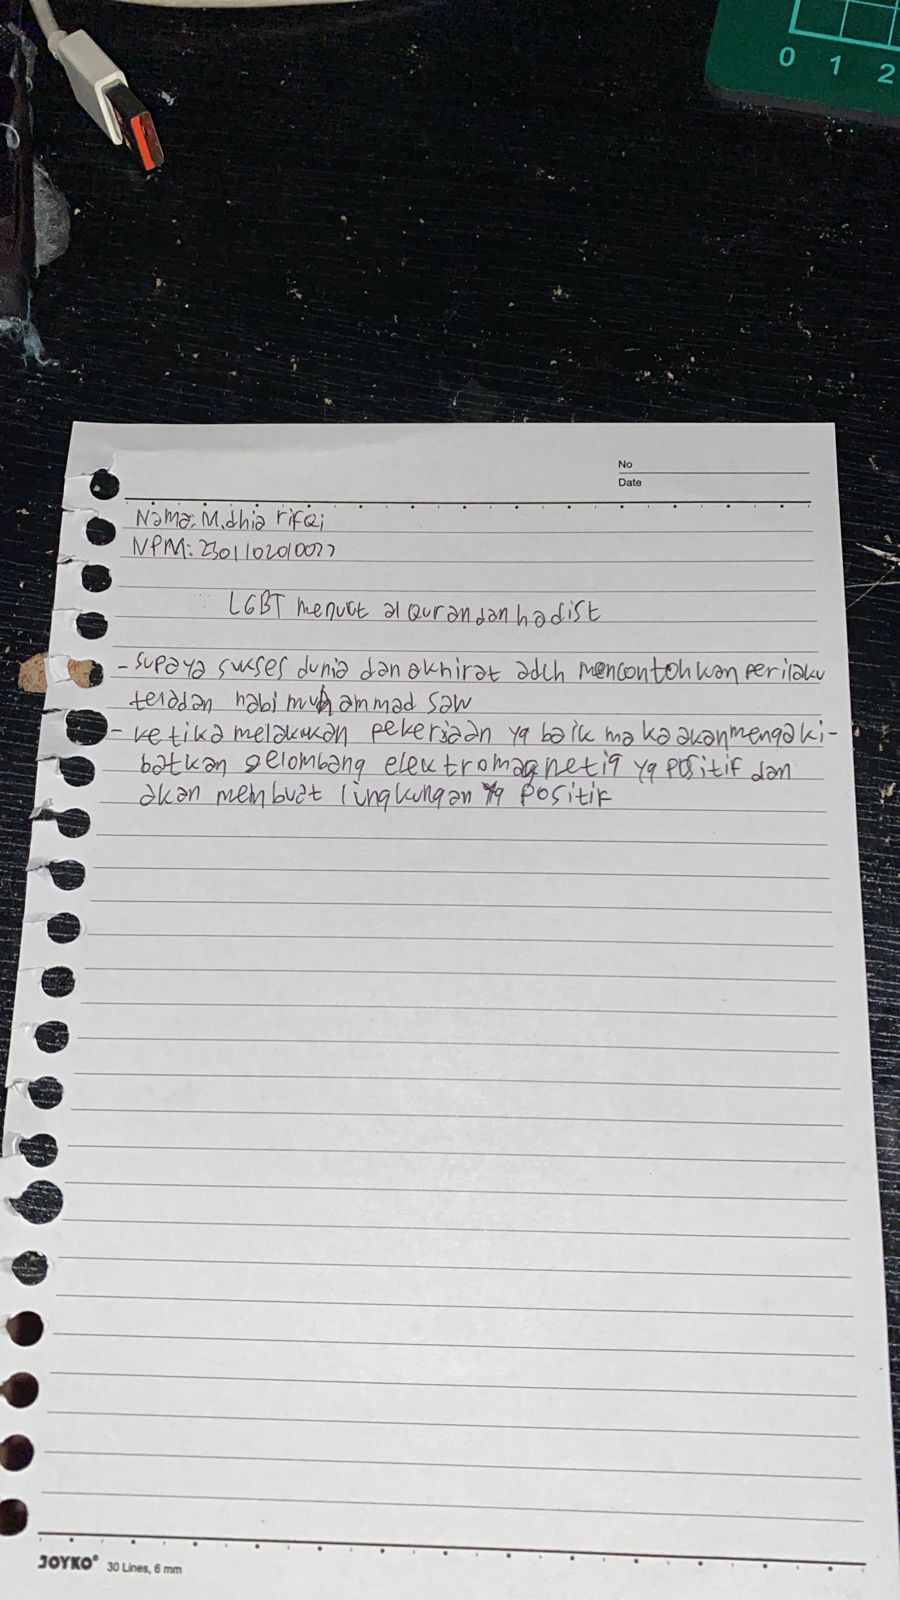 0 1 2
No
Date
Nama: M. dhia rifqi
NPM: 2301102010077
LGBT menurut al Quran dan hadist
- supaya sukses dunia dan akhirat adlh mencontohkan perilaku
teladan nabi muhammad saw
- ketika melakukan pekerjaan yg baik maka akan mengaki-
batkan gelombang elektromagnetig yg positif dan
akan membuat lingkungan yg positif
JOYKO 30 Lines, 6 mm